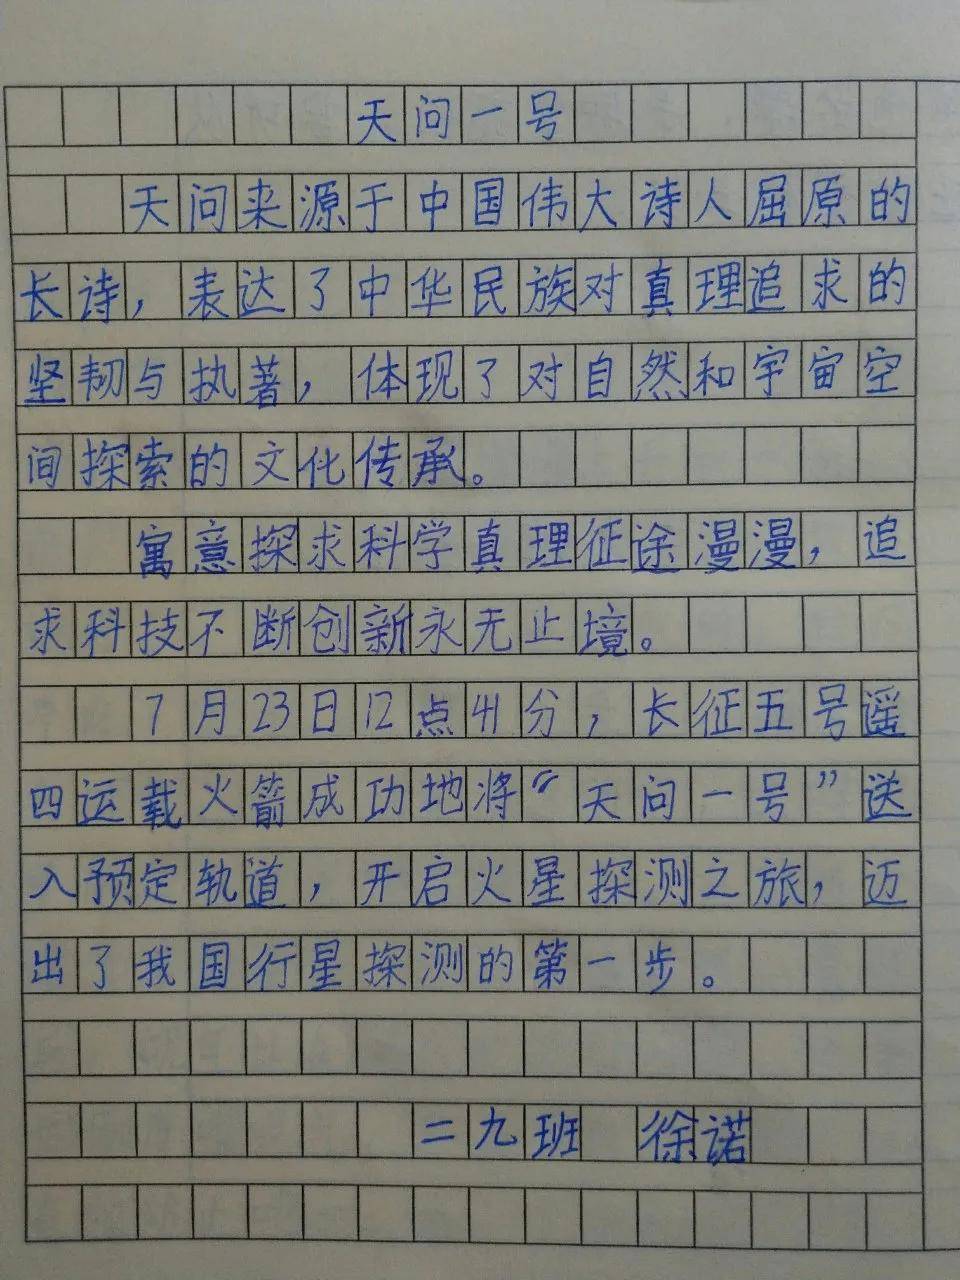 天问一号
天问来源于中国伟大诗人屈原的
长诗，表达了中华民族对真理追求的
坚韧与执著，体现了对自然和宇宙空
间探索的文化传承。
寓意探求科学真理征途漫漫，追
求科技不断创新永无止境。
7月23日12点41分，长征五号遥
四运载火箭成功地将“天问一号”送
入预定轨道，开启火星探测之旅，迈
出了我国行星探测的第一步。
二九班 徐诺